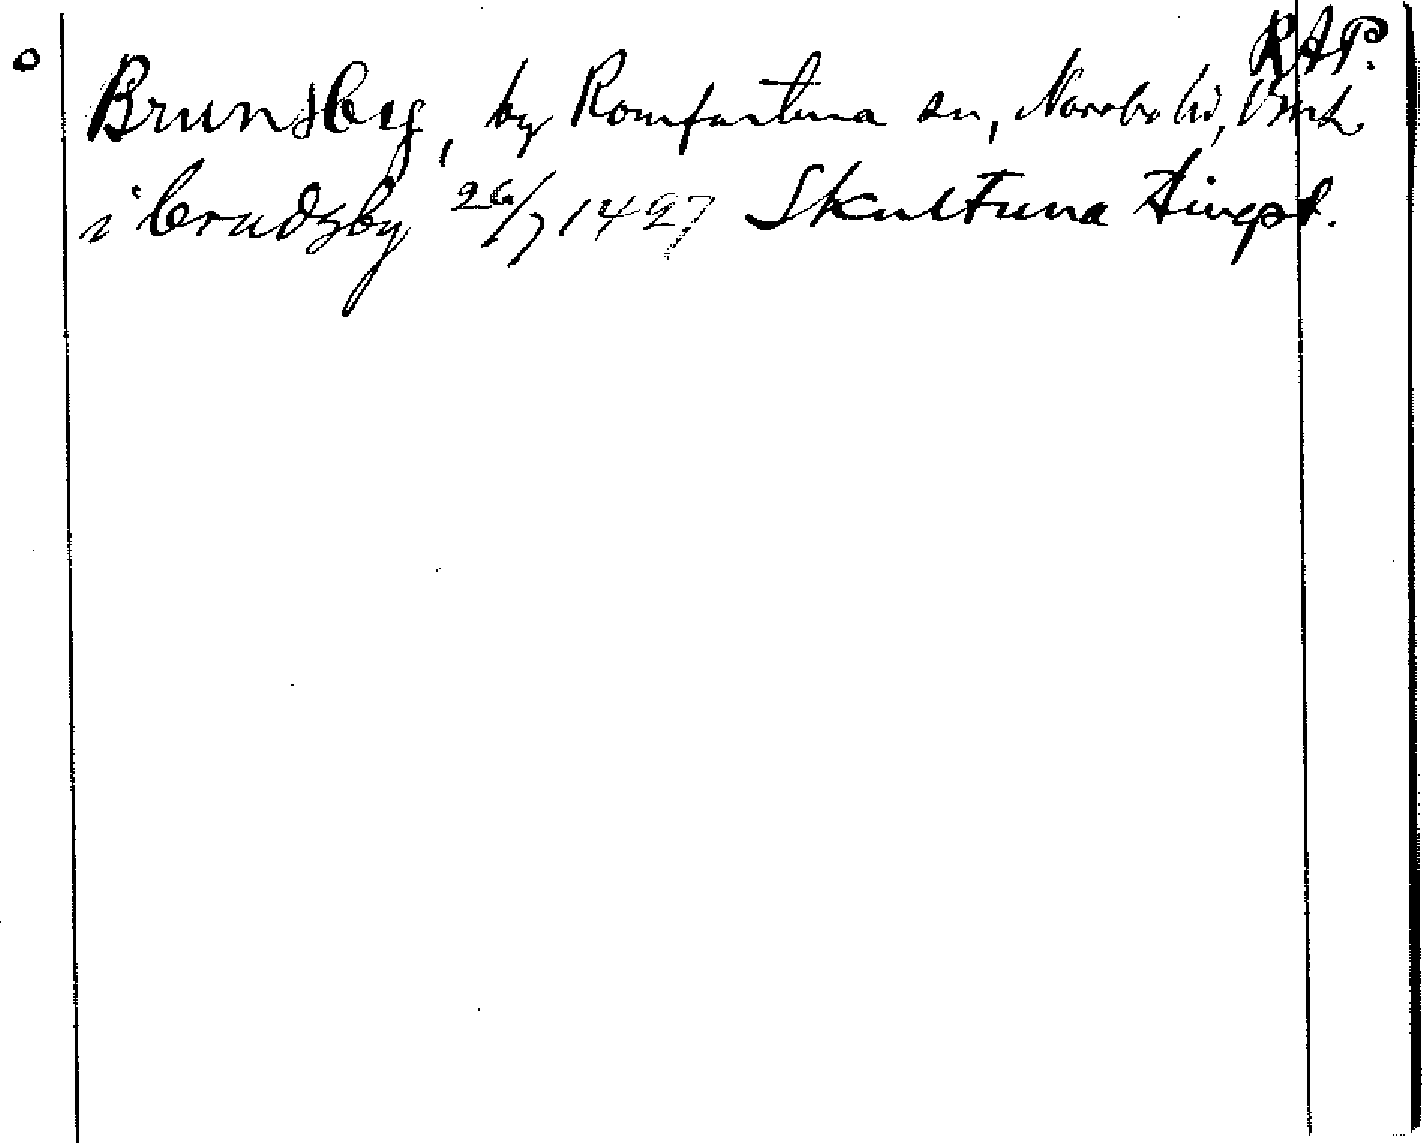 RAP.
Brunsby, by Romfartuna sn, Norrbo hd, Vml.
i brudzby 26/7 1427 Skultuna tingst.